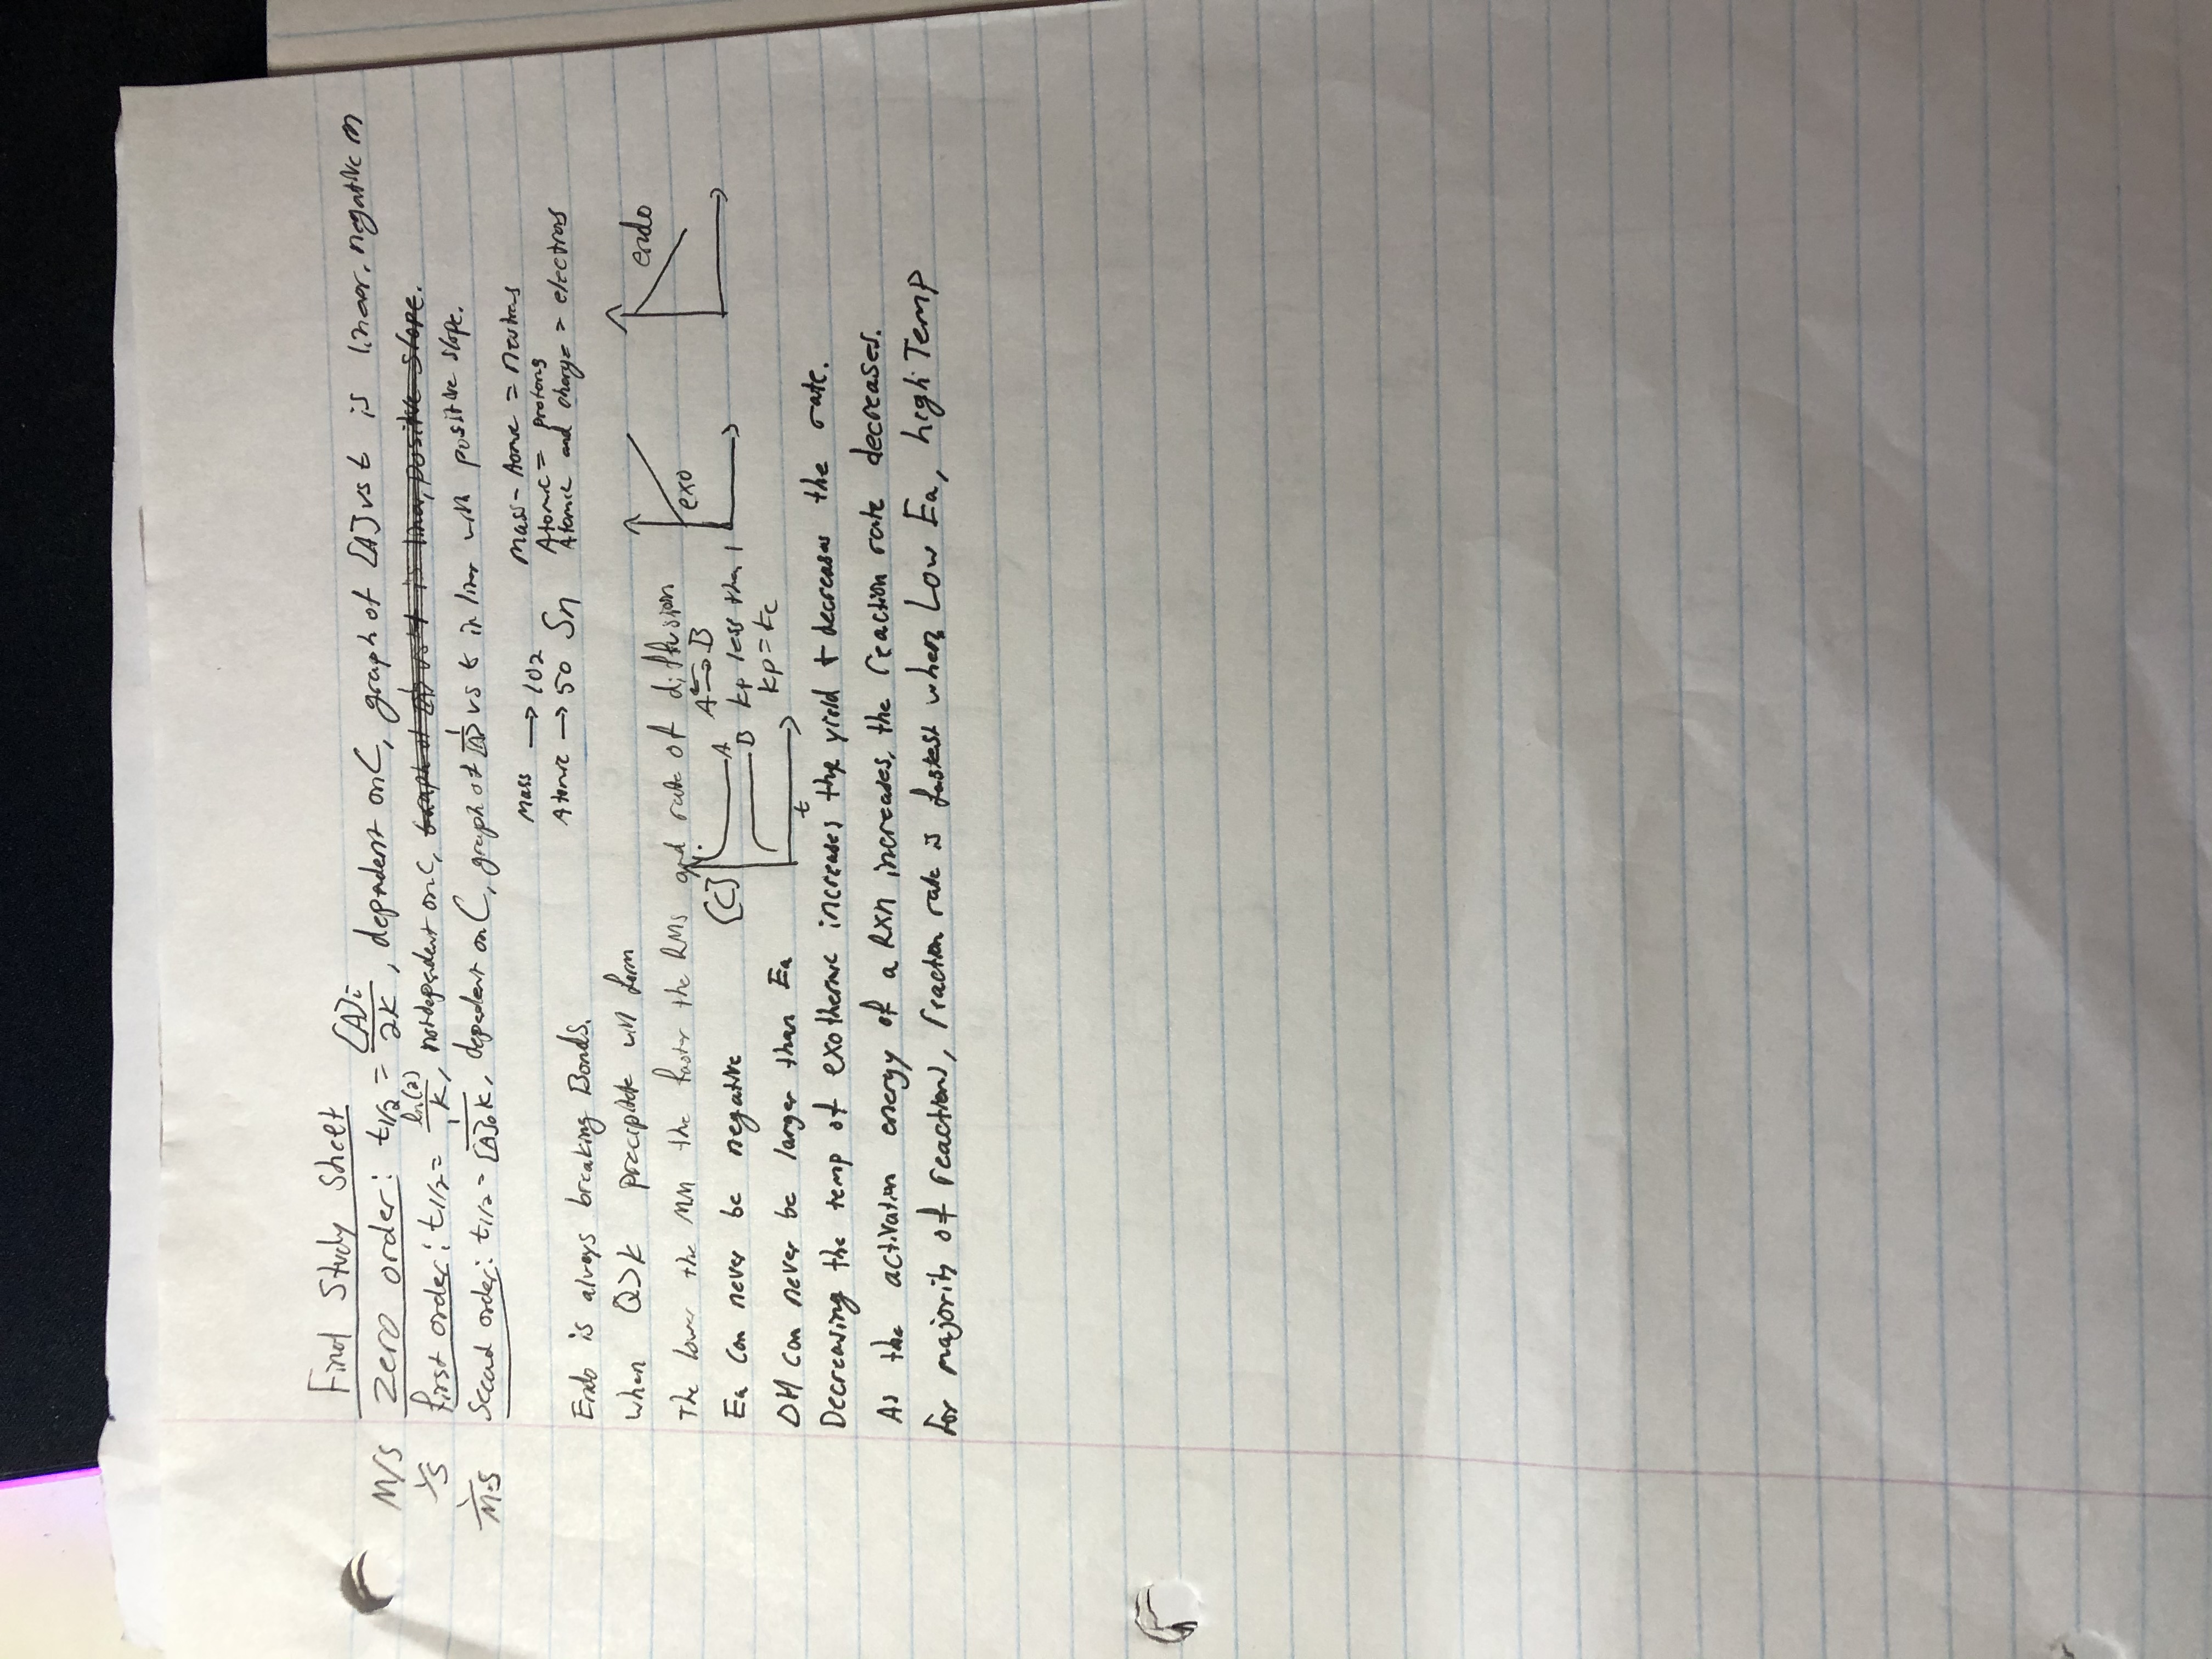 Final Study Sheet
M/s zero order: t1/2 = [A]i/2K, dependent on C, graph of [A] vs t is linear, negative m
1/s first order: t1/2 = ln(2)/K, not dependent on C,
1/M·s Second order: t1/2 = 1/[A]0K, dependent on C, graph of 1/[A] vs t in liner with positive slope.
Mass → 102 Sn Mass - Atomic = neutrons
Atomic → 50 Atomic = protons
Atomic and charge = electrons
Endo is always breaking Bonds.
When Q>K precipitate will form
The lower the MM the faster the RMS and rate of diffusion
exo
endo
Ea Can never be negative
[C] A B t
A ⇌ B
Kp less than 1
Kp = Kc
ΔH Can never be larger than Ea
Decreasing the temp of exothermic increases the yield + decreases the rate.
As the activation energy of a Rxn increases, the reaction rate decreases.
For majority of reactions, reaction rate is fastest when Low Ea, high Temp